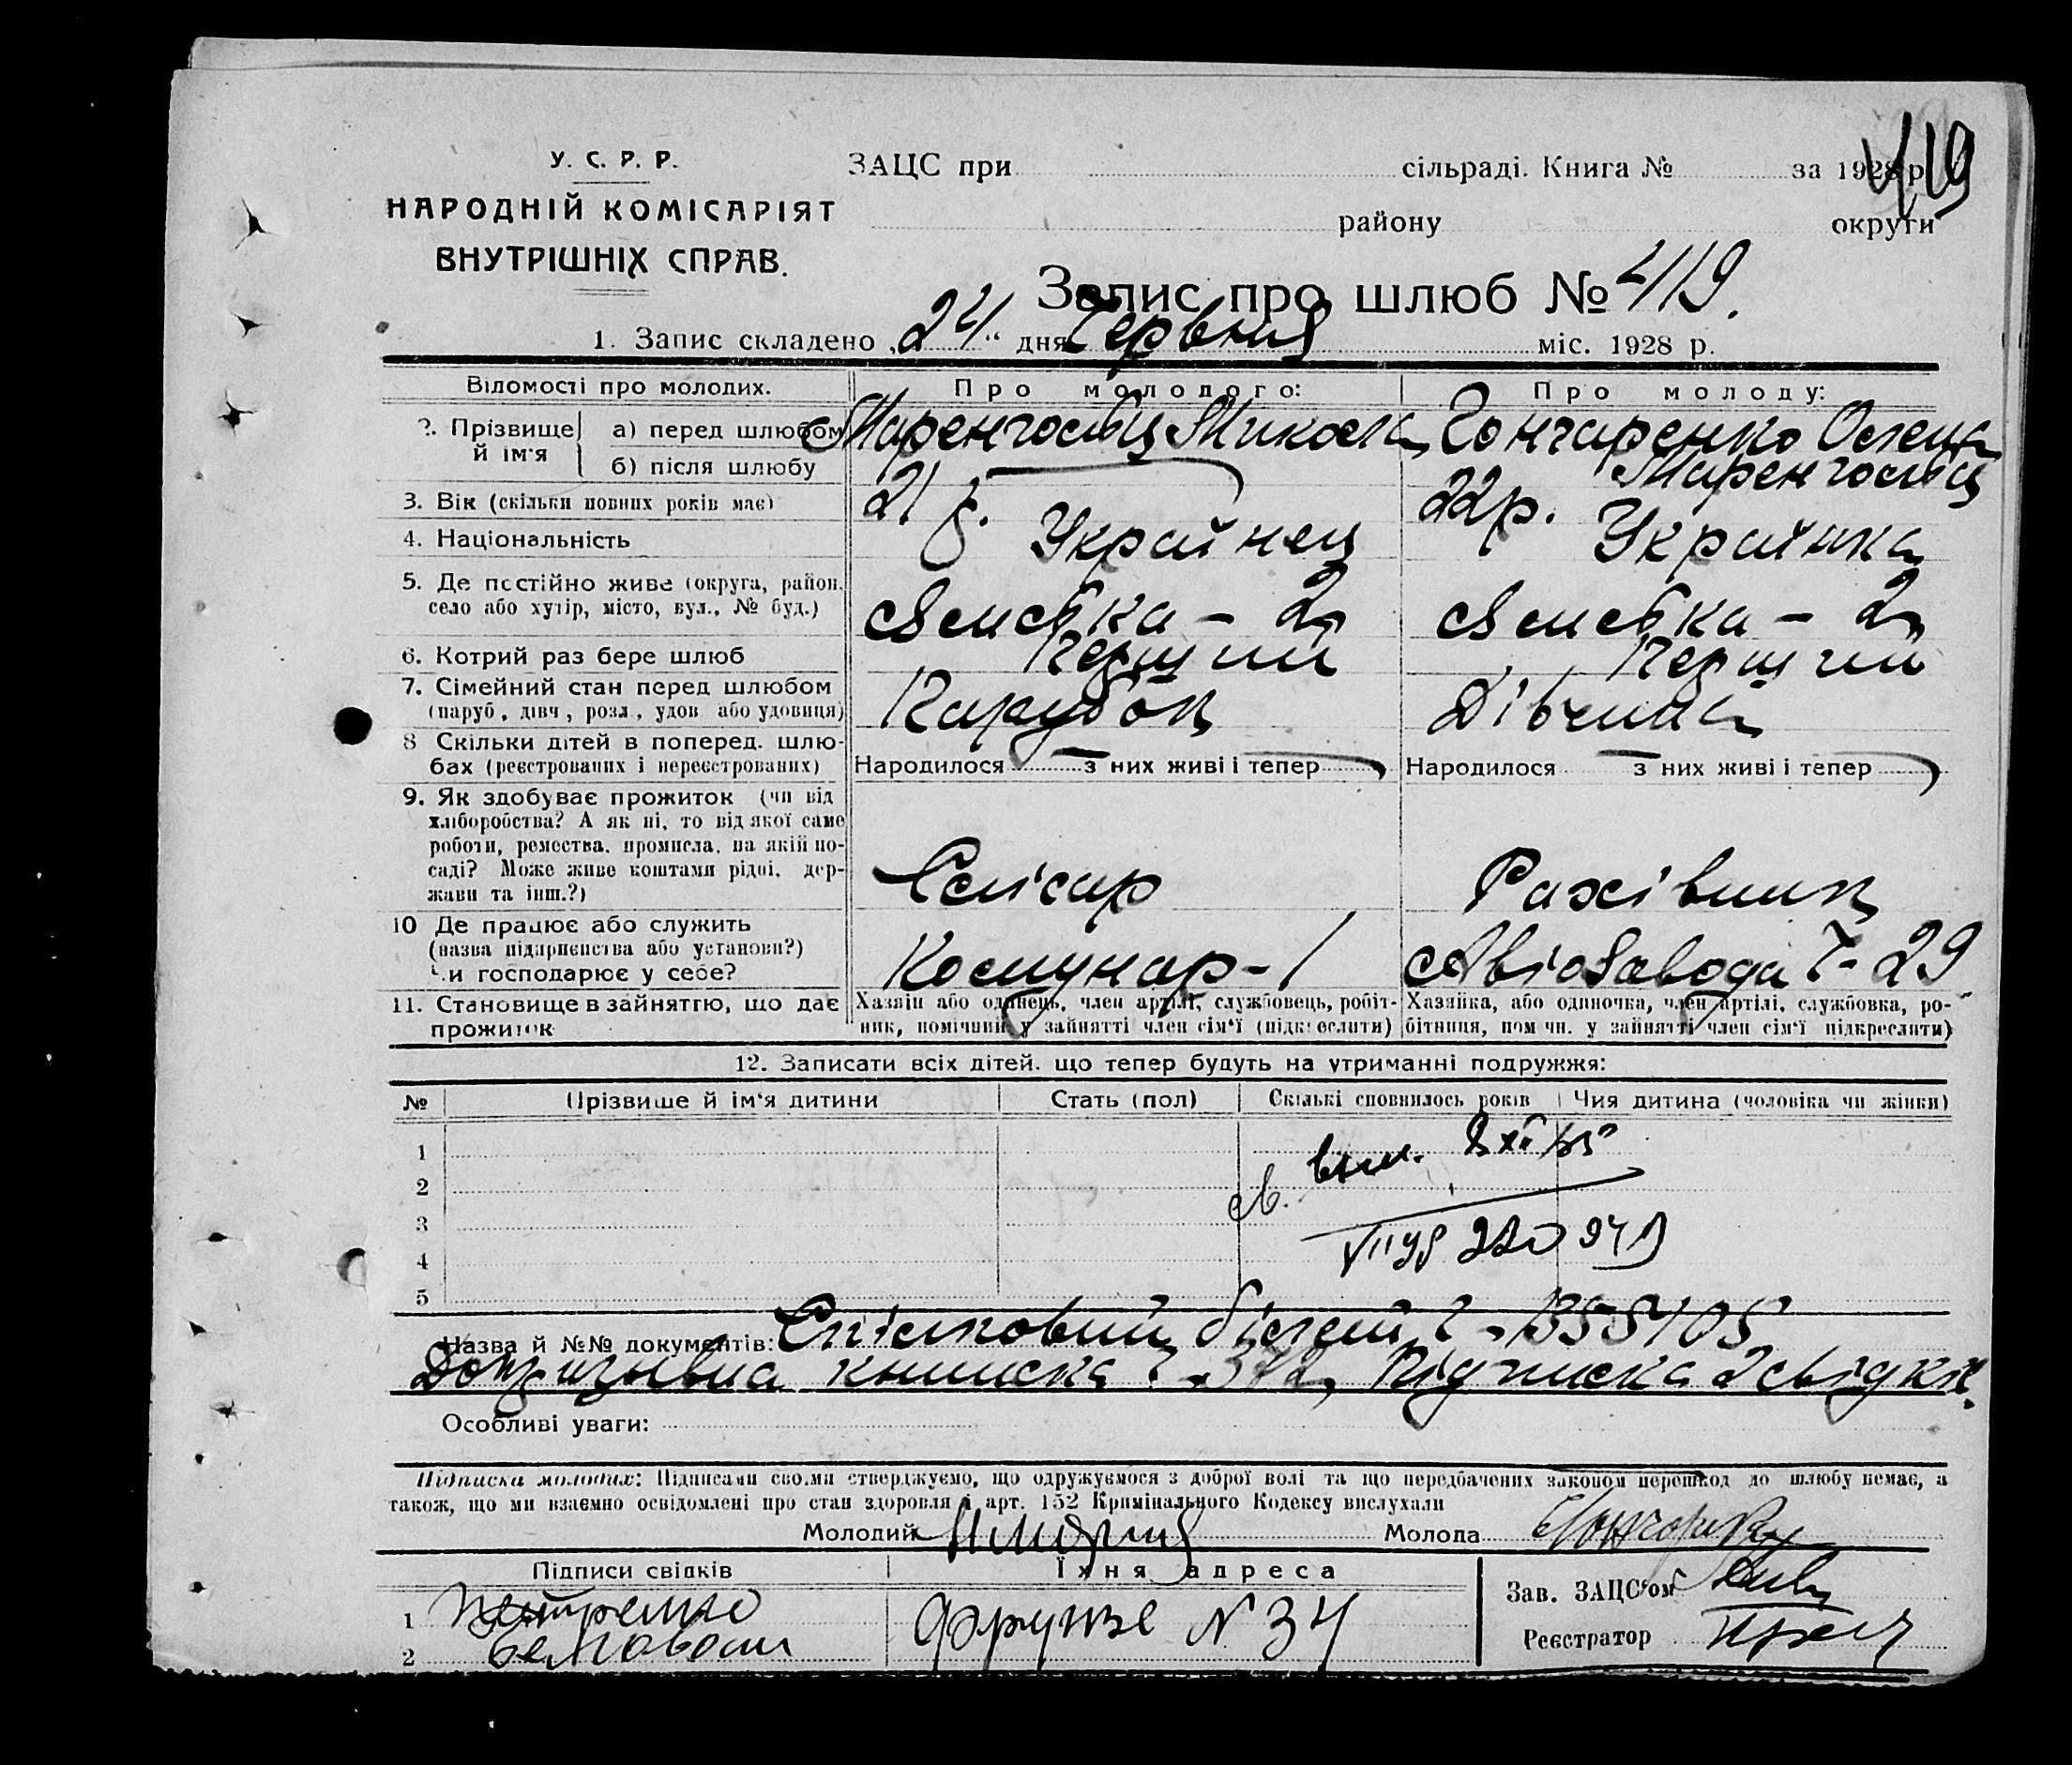 419
У. С. Р. Р.
НАРОДНІЙ КОМІСАРІЯТ
ВНУТРІШНІХ СПРАВ.
ЗАЦС при сільраді. Книга № за 1928 р.
району округи
Запис про шлюб № 419.
1. Запис складено „24" дня Червня міс. 1928 р.
Відомості про молодих. Про молодого: Про молоду:
2. Прізвище й ім'я
а) перед шлюбом Микола Гончаренко Олена
б) після шлюбу
3. Вік (скільки повних років має) 21 р. 22 р.
4. Національність Українец Українка
5. Де постійно живе (округа, район, село або хутір, місто, вул., № буд.)
6. Котрий раз бере шлюб Перший Перший
7. Сімейний стан перед шлюбом (паруб., дівч., розл., удов. або удовиця) Парубок Дівчина
8 Скільки дітей в поперед. шлюбах (реєстрованих і нереєстрованих) Народилося — з них живі і тепер — Народилося — з них живі і тепер —
9. Як здобуває прожиток (чи від
хліборобства? А як ні, то від якої саме
роботи, ремества, промисла, на якій по-
саді? Може живе коштами рідні, дер-
жави та інш.?) Слісар Рахівник
10 Де працює або служить
(назва підприємства або установи?)
Чи господарює у себе? Комунар-1 Авіозавода Ч-29
11. Становище в зайняттю, що дає
прожиток
Хазяїн або одинець, член артілі, службовець, робіт-
ник, помічний у зайнятті член сім'ї (підкреслити)
Хазяйка, або одиночка, член артілі, службовка, ро-
бітниця, пом чн. у зайнятті член сім'ї підкреслити)
12. Записати всіх дітей, що тепер будуть на утриманні подружжя:
№ Прізвище й ім'я дитини Стать (пол) Скількі сповнилось років Чия дитина (чоловіка чи жінки)
1
2
3
4
5
Назва й №№ документів: білет Ч-
книжка Ч 372, Підписка 2 свідків.
Особливі уваги:
Підписка молодих: Підписами своїми стверджуємо, що одружуємося з доброї волі та що передбачених законом перешкод до шлюбу немає, а
також, що ми взаємно освідомлені про стан здоровля і арт. 152 Кримінального Кодексу вислухали
Молодий Молода
Підписи свідків Їхня адреса
Зав. ЗАЦС'ом
1 Фрунзе N 34
Реєстратор
2